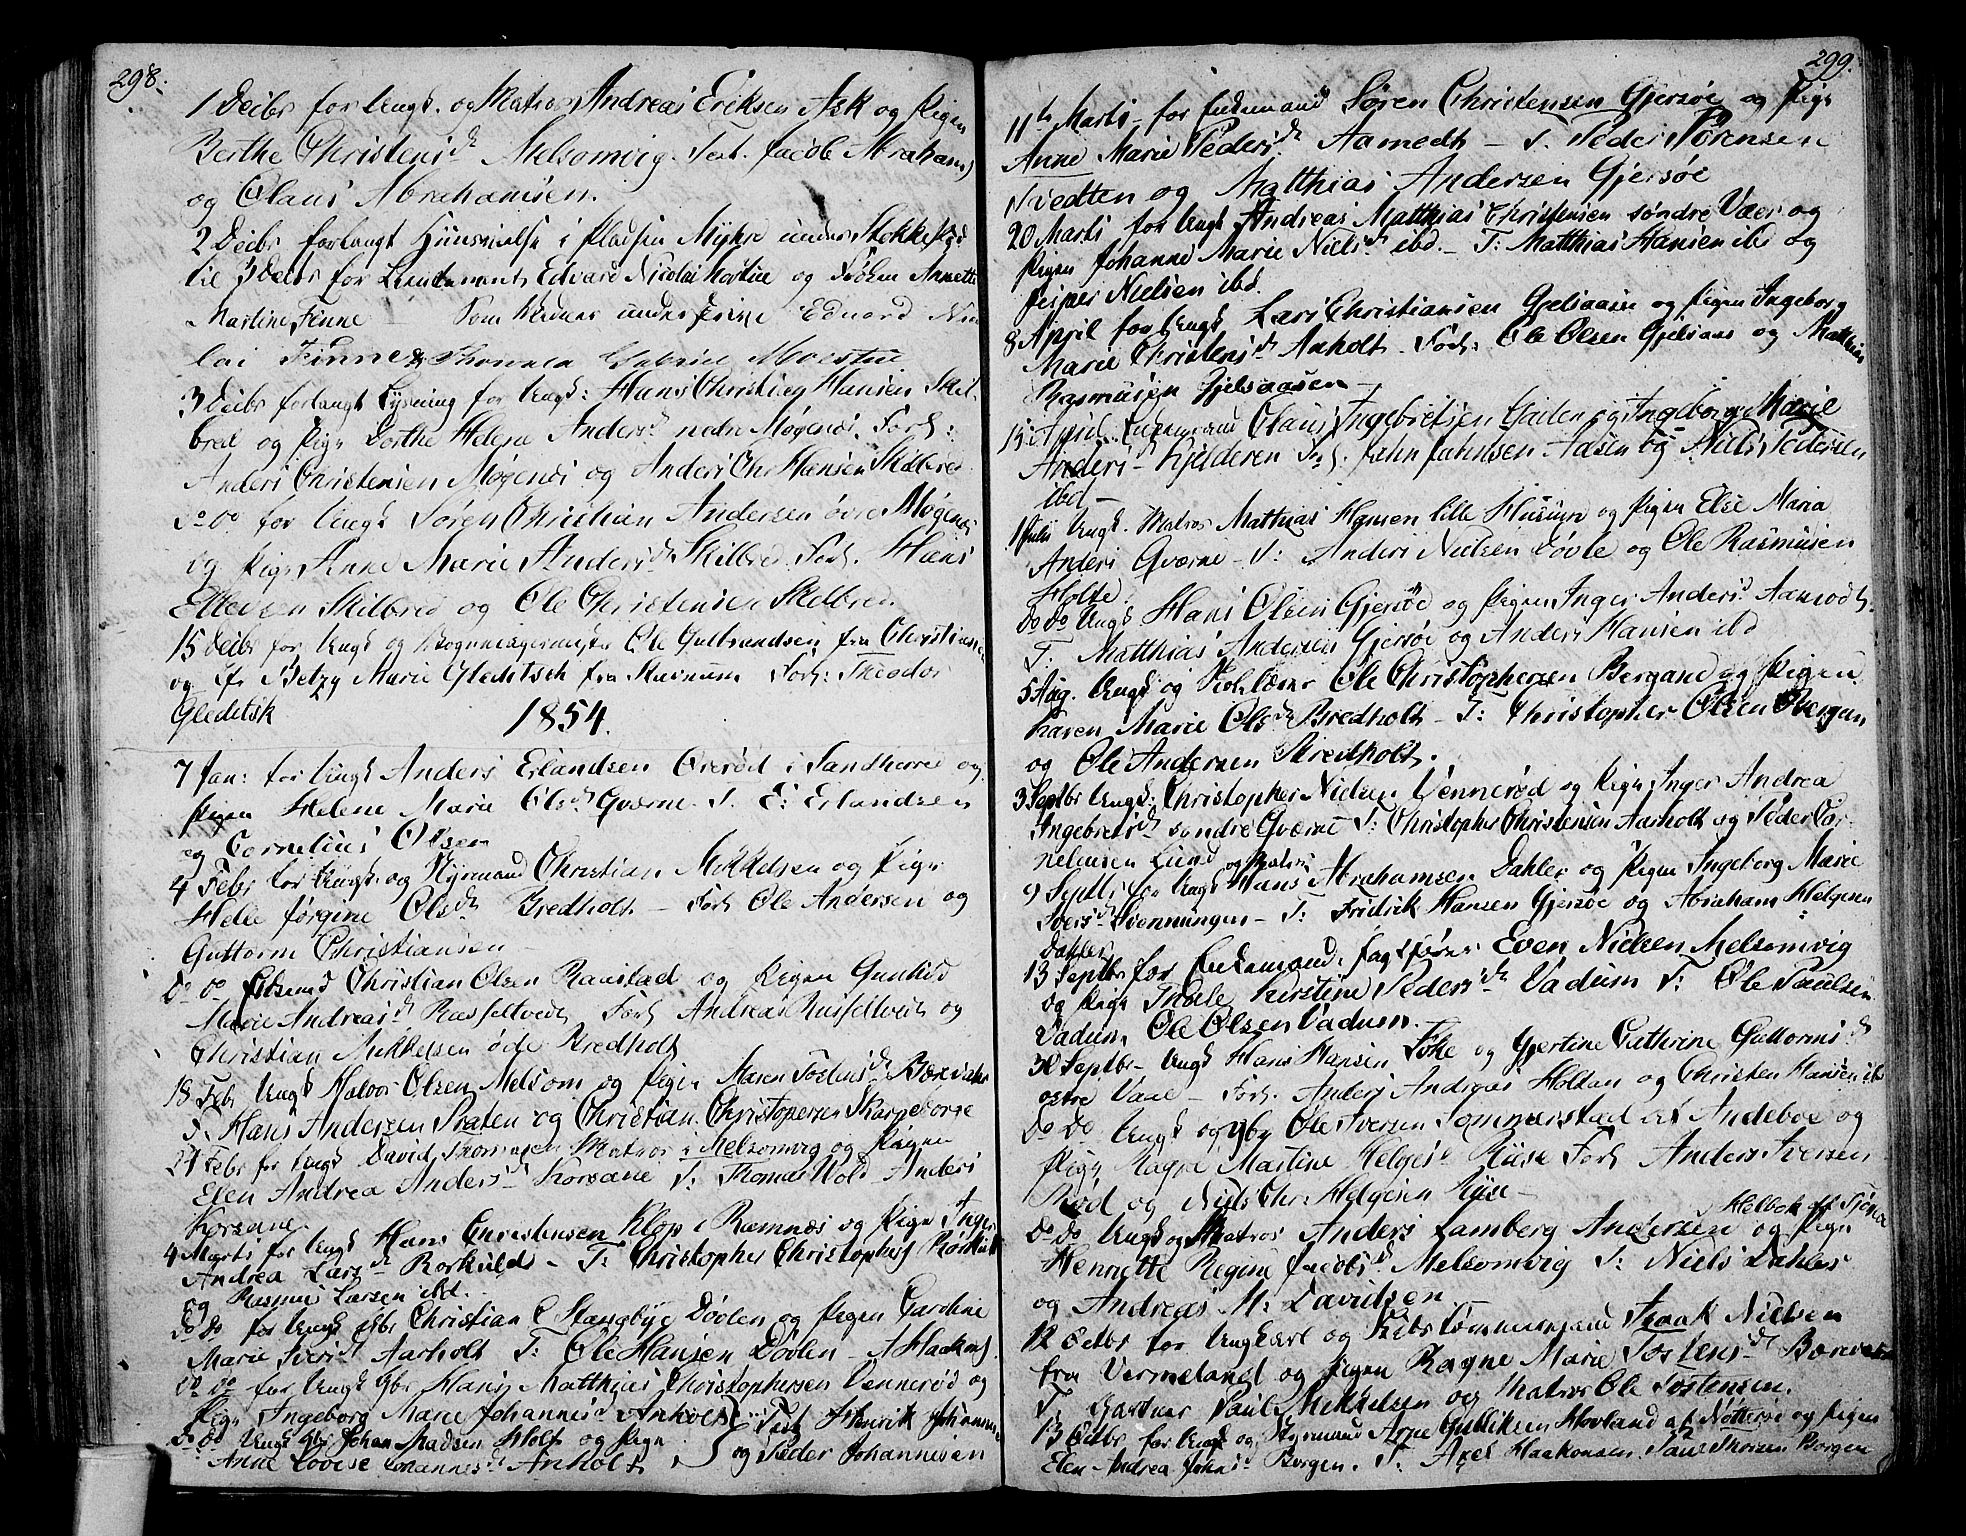 298.
1 Decbr for Ungk. og Matros Andreas Eriksen Ask og Pigen
Berthe Christensd Melsomvig. Test. Jacob Abrahams
og Olaus Abrahamsen.
2 Decbr forlangt i Pladsen Myhre under Stokke
til 3 Decbr for Lieutenant Edvard Nicolai og Frøken Annette
Martine Finne Som under Edvard Nico
lai Finne & Thomas
3 Decbr forlangt Lysning for Ungk: Hans Christian Hansen Skil
bred og Pige Dorthe Helene Andersd nedre Møgenæs. Forl:
Anders Christensen Møgenæs og Anders Chr Hansen Skilbred
Do Do for Ungk Søren Christian Andersen øvre Møgenæs
og Pige Anne Marie Andersd Skilbred. Forl. Hans
Ellevsen Skilbred og Ole Christensen Skilbred.
15 Decbr for Ungk og Ole Gulbrandsen fra Christiania
og Betzy Marie Gleditsch fra Forl: Theodor
Gleditsk
1854.
7 Jan: for Ungk Anders Erlandsen Orerød i Sandherre og
Pigen Helene Marie Olsd Gværne. T. E: Erlandsen
og Cornelius Olsen
4 Febr for Ungk. og Styrmand Christian Mikkelsen og Pige
Helle Jørgine Olsd Bredholt - Forl Ole Andersen og
Guttorm Christiansen -
Do Do Christian Olsen Ranstad og Pigen Gunhild
Marie Andreasd Rasseltvedt Forl Andreas Russeltvedt og
Christian Mikkelsen øde Bredholt
18 Febr Ungk Halvor Olsen Melsom og Pige Maren Tostensd
T. Hans Andersen Præsten og Christian Christopersen Skarpeborge
21 Febr for Ungk David Thomasen Matros i Melsomvig og Pigen
Elen Andrea Andersd Korsane T: Thomas Hold Anders
Korsane.
4 Marts for Ungk Hans Christensen Klop i Ramnæs og Pige Inger
Andrea Larsd Rorkuld - T: Christopher Christophers
og Rasmus Larsen ibd.
Do Do for Ungk gbr Christian C Stangbye Døvlen og Pigen Gardine
Marie Iversd Aarholt T: Ole Hansen Døvlen - A Haakens
Do Do for Ungk Gbr Hans Matthias Christophersen Vennerød og
Pige Ingeborg Marie Johannesd Anholt } Test Henrik Johannesen
Do Do Ungk Gbr Johan Madsen Holt og Pige
Anne Lovise Johannesd Anholt og Peder Johannesen
299.
11te Marts - for Enkemand Søren Christensen Gjersøe og Pige
Anne Marie Pedersd Aamodt - T. Peder Sørensen
Tvedten og Matthias Andersen Gjersøe
20 Marts for Ungk Andreas Matthias Christensen søndre Væer og
Pigen Johanne Marie Nielsd ibd. - T: Matthias Hansen ibd og
Jesper Nielsen ibd.
8 April for Ungk Lars Christiansen Gjelsaasen og Pigen Ingeborg
Marie Christensd Anholt Forl: Ole Olsen Gjelsaas og Matthias
Rasmusen Gjelsaasen -
15 April Enkemand Olaus Ingebretsen Gaden og Ingeborg Marie
Anders- Kjelderen Forl. John Johnsen Aasen og Niels Pedersen
ibd -
1 Julii Ungk. Matros Matthias Hansen lille Huseure og Pigen Else Maria
Anders Gværne - T: Anders Nielsen Døvle og Ole Rasmusen
Holte.
Do Do Ungk Hans Olsen Gjersøe og Pigen Inger Andersd Aamodt.
T. Matthias Andersen Gjersøe og Anders Hansen ibd
5 Aug. Ungk og Ole Christophersen Bergane og Pigen
Karen Marie Olsd Bredholt - T: Christopher Olsen Bergan
og Ole Andersen Bredholt.
3 Septbr Ungk: Christopher Nielsen Vennerød og Pige Inger Andrea
Ingebretsd søndre Gværne T: Christopher Christensen Aarholt og Peder Cor
nelensen Lund
9 Septbr for Ungk og Matros Hans Abrahamsen Dahler og Pigen Ingeborg Marie
Iversd Svenningen - T: Fridrik Hansen Gjersøe og Abraham Helgesen
Dahler
13 Septbr for Enkemand, Even Nielsen Melsomvig
og Pige Thale Kirstine Pedersd Vadum T: Ole Paulsen
Vadum, Ole Olsen Vadum.
30 Septbr - Ungk Hans Hansen Føke og Gjertine Cathrine Guttormsd
østre Vane - Forl. Anders Andreas Holtan og Christen Hansen ibd
Do Do Ungk og gbr Ole Iversen Sommerstad af Andeboe og
Pige Ragne Martine Helgesd Riise Forl Anders Iversen
Rød og Niels Chr: Helgesen Riise -
Do Do Ungk og Matros Anders Lamberg Andersen Helbok af Tjømø og Pige
Henriette Regine Jacobsd Melsomvig T: Niels Dahler
og Andreas M: Davidsen
12 Octbr for Ungkarl og Skibstømmermand Isaak Nielsen
fra Vermeland og Pigen Ragne Marie Tostensd
T. Gartner Paul Mikkelsen og Matros Ole Tostensen.
13 Octbr for Ungk og Styrmand Arne Gulliksen Hovland af Nøtterøe og Pigen
Elen Andrea Johnsd Borgen. T: Axel Haakonsen. Paul Thorsen Borgen